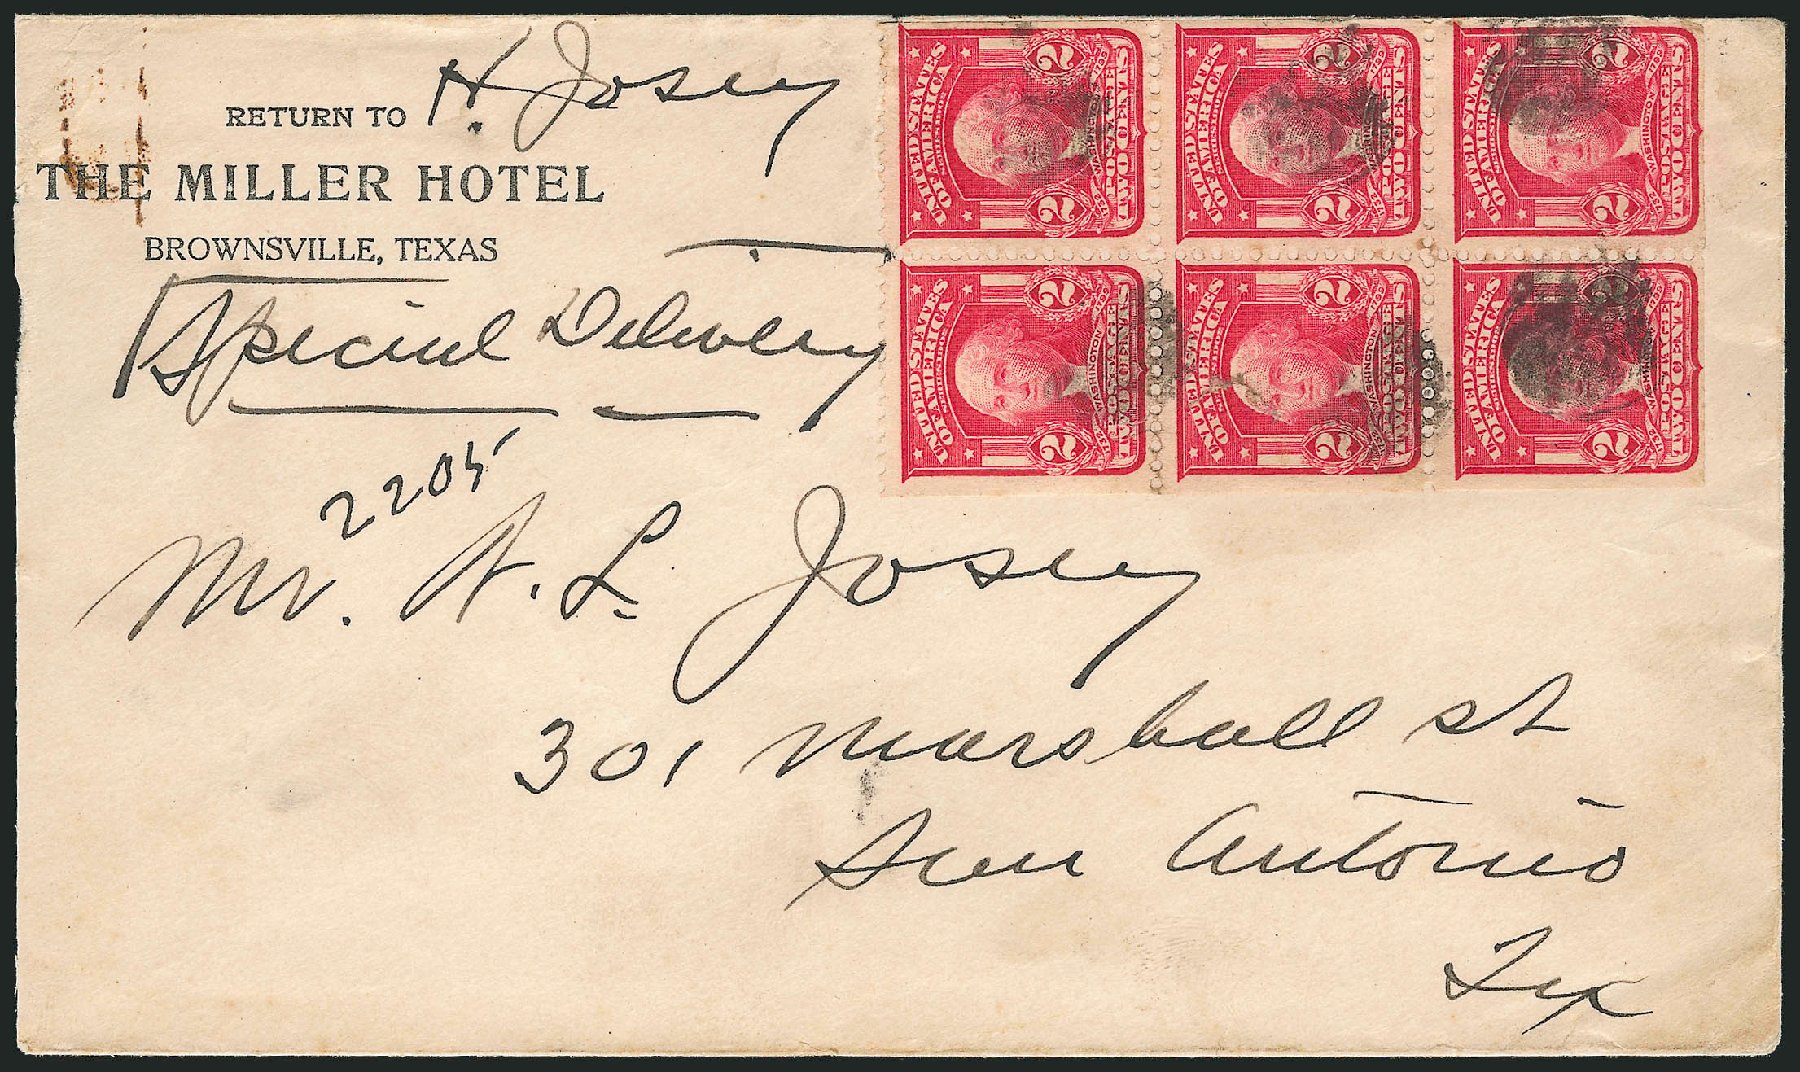 RETURN TO H. Josey
THE MILLER HOTEL
BROWNSVILLE, TEXAS
Special Delivery
2205
Mr. H. L. Josey
301 Marshall st
San Antonio
Tex
UNITED STATES OF AMERICA
2 WASHINGTON 2
POSTAGE
TWO CENTS
UNITED STATES OF AMERICA
2 WASHINGTON 2
POSTAGE
TWO CENTS
UNITED STATES OF AMERICA
2 WASHINGTON 2
POSTAGE
TWO CENTS
UNITED STATES OF AMERICA
2 WASHINGTON 2
POSTAGE
TWO CENTS
UNITED STATES OF AMERICA
2 WASHINGTON 2
POSTAGE
TWO CENTS
UNITED STATES OF AMERICA
2 WASHINGTON 2
POSTAGE
TWO CENTS